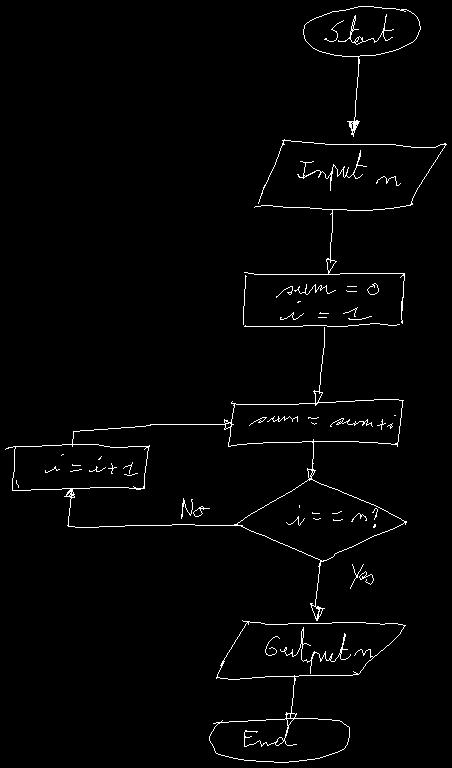 Start
Input n
sum = 0
i = 1
sum = sum+i
i = i+1
No
i == n?
Yes
Output n
End